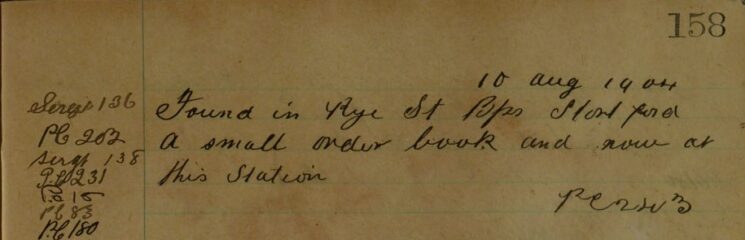 158
10 Aug 1904
Sergt 136
PC 202
Sergt 138
PC 231
PC 83
PC 180
Found in Rye St Bps Stortford
A small order book and now at
this Station